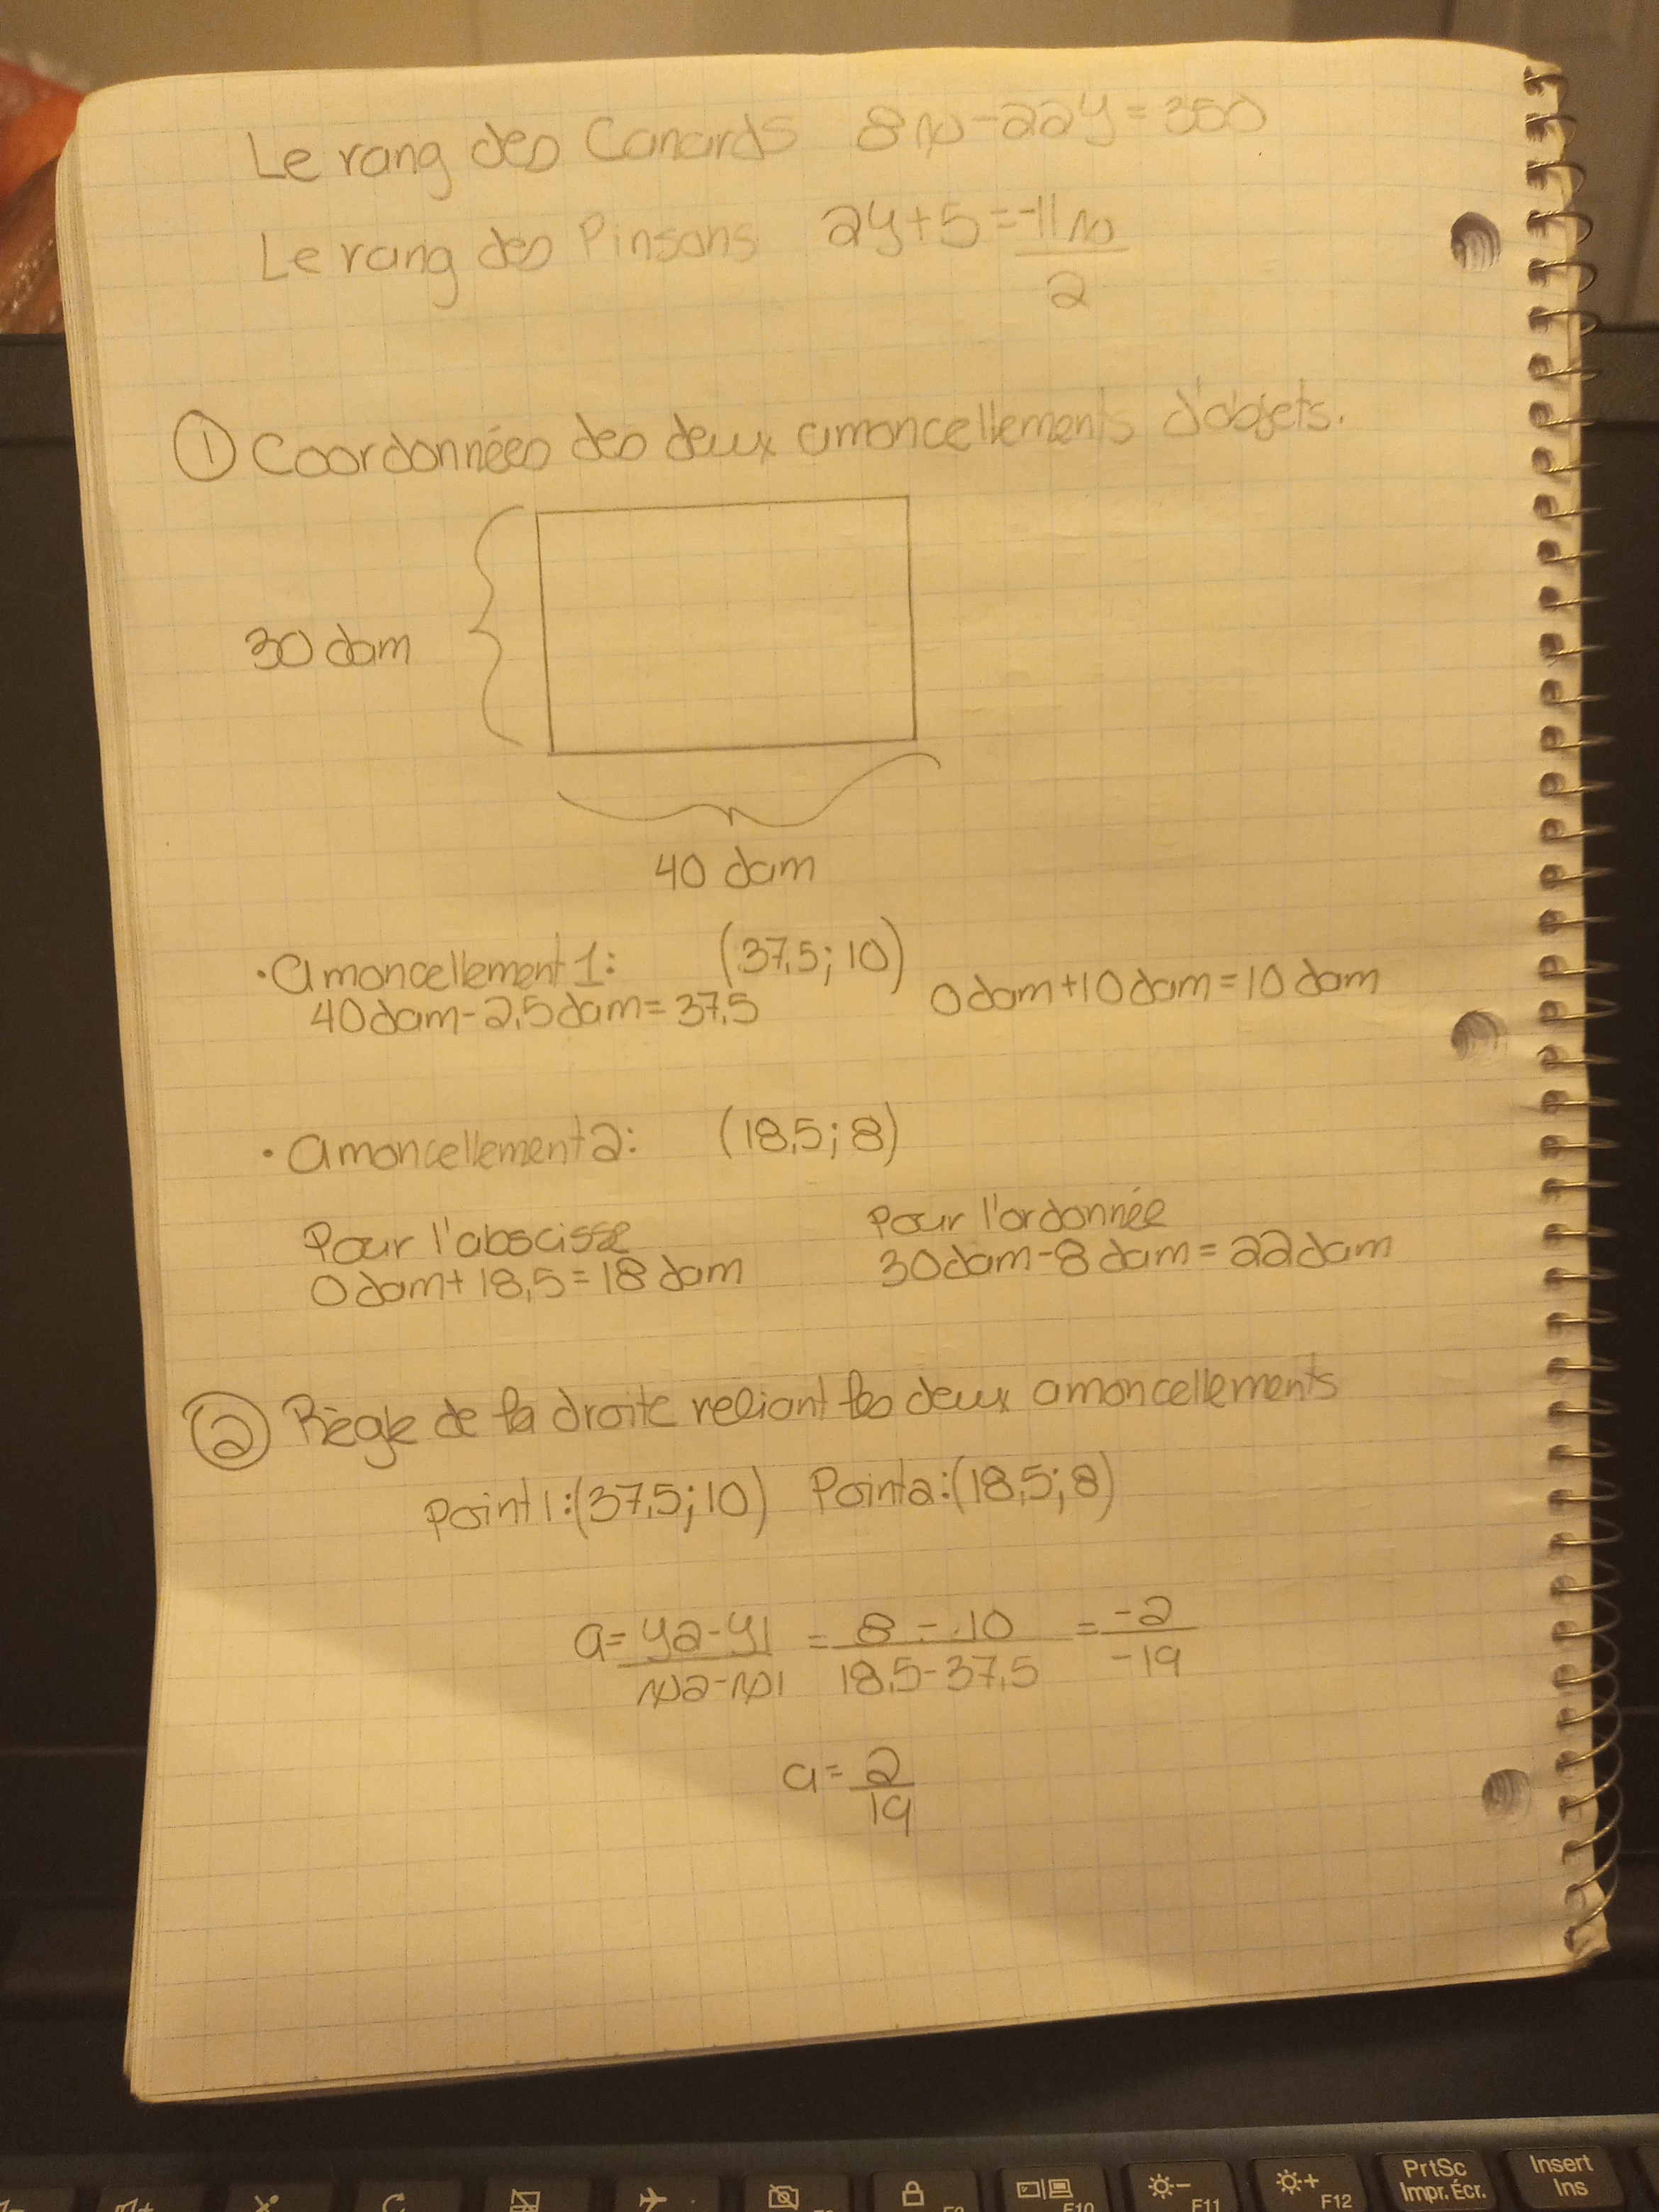 Le rang des Canards 8x-22y=350
Le rang des Pinsons 2y+5=-11x/2
① Coordonnées des deux amoncellements d'objets.
30 dam
40 dam
• Amoncellement 1: (37,5; 10)
40dam-2,5dam=37,5 0dam+10dam=10dam
• Amoncellement 2: (18,5; 8)
Pour l'abscisse Pour l'ordonnée
0dam+18,5=18dam 30dam-8dam=22dam
② Règle de la droite reliant les deux amoncellements
Point 1:(37,5; 10) Point 2:(18,5; 8)
a=y2-y1/x2-x1 = 8-10/18,5-37,5 = -2/-19
a=2/19
PrtSc Insert
Impr. Écr. Ins
F10 F11 F12